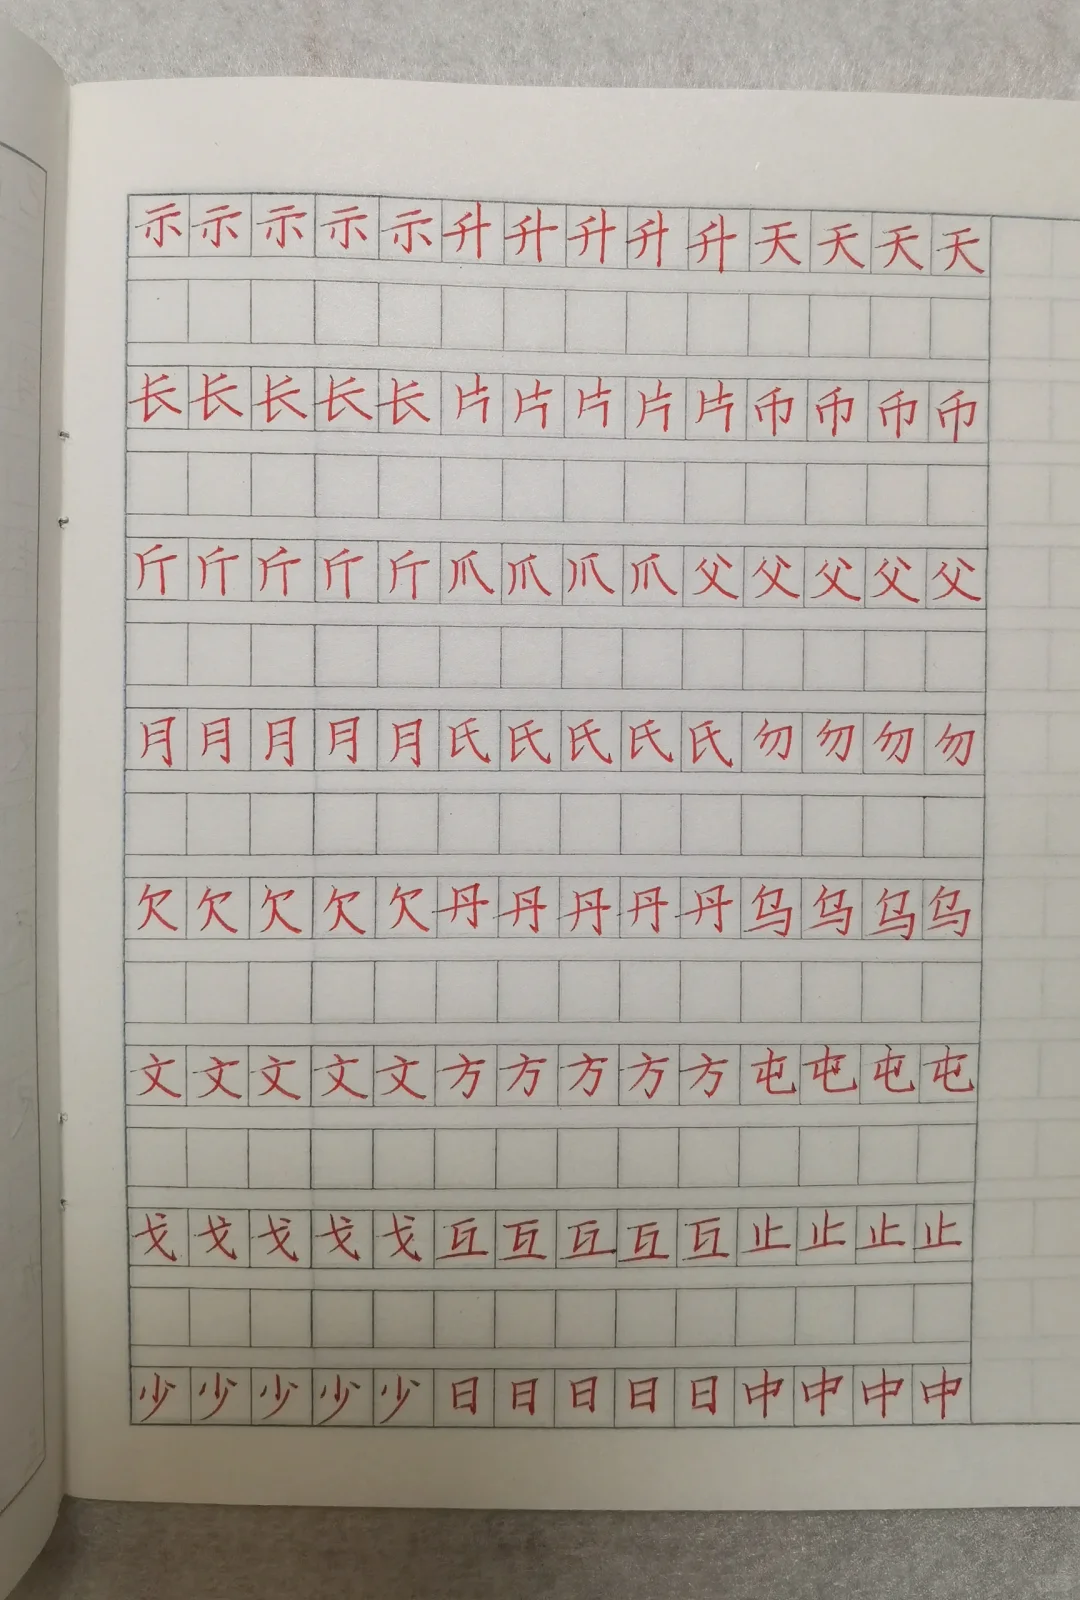 示示示示示升升升升升天天天天
长长长长长片片片片片币币币币
斤斤斤斤斤爪爪爪爪父父父父父
月月月月月氏氏氏氏氏勿勿勿勿
欠欠欠欠欠丹丹丹丹丹乌乌乌乌
文文文文文方方方方方屯屯屯屯
戈戈戈戈戈互互互互互止止止止
少少少少少日日日日日中中中中